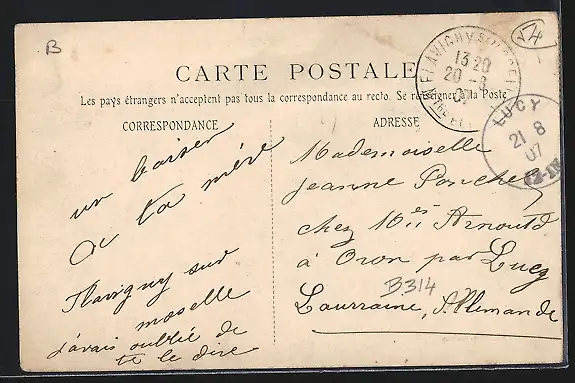 B
V4
CARTE POSTALE
Les pays étrangers n'acceptent pas tous la correspondance au recto. Se renseigner à la Poste
FLAVIGNY SUR
13 20
20 - 8
LUCY
21 8
07
12-1N
CORRESPONDANCE
un baiser
de ta mère
Flavigny sur
moselle
j'avais oublié de
te le dire
ADRESSE
Mademoiselle
Jeanne
chez Arnould
à Oron par Lucy
B314
Lourraine, Allemande